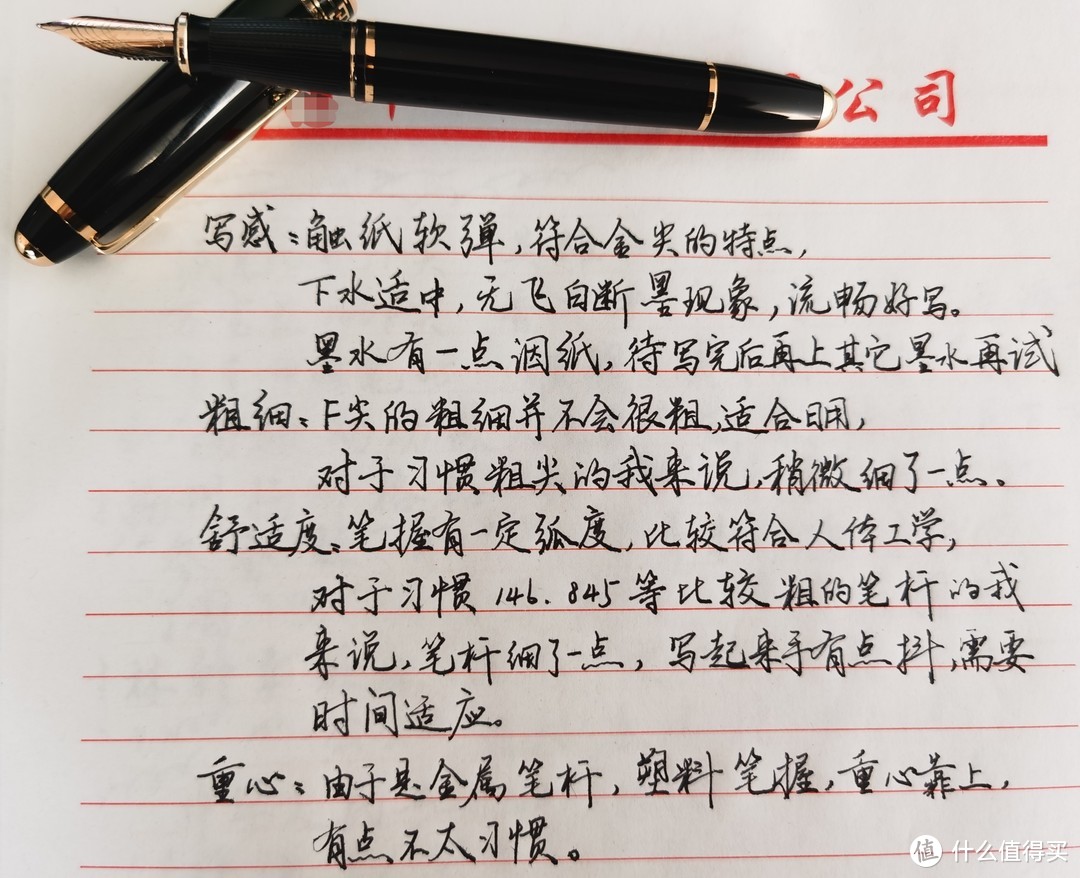 公司
写感：触纸软弹，符合金尖的特点，
下水适中，无飞白断墨现象，流畅好写。
墨水有一点洇纸，待写完后再上其它墨水再试
粗细：F尖的粗细并不会很粗，适合日用，
对于习惯粗尖的我来说，稍微细了一点。
舒适度：笔握有一定弧度，比较符合人体工学，
对于习惯146.845等比较粗的笔杆的我
来说，笔杆细了一点，写起来手有点抖，需要
时间适应。
重心：由于是金属笔杆，塑料笔握，重心靠上，
有点不太习惯。
值 什么值得买